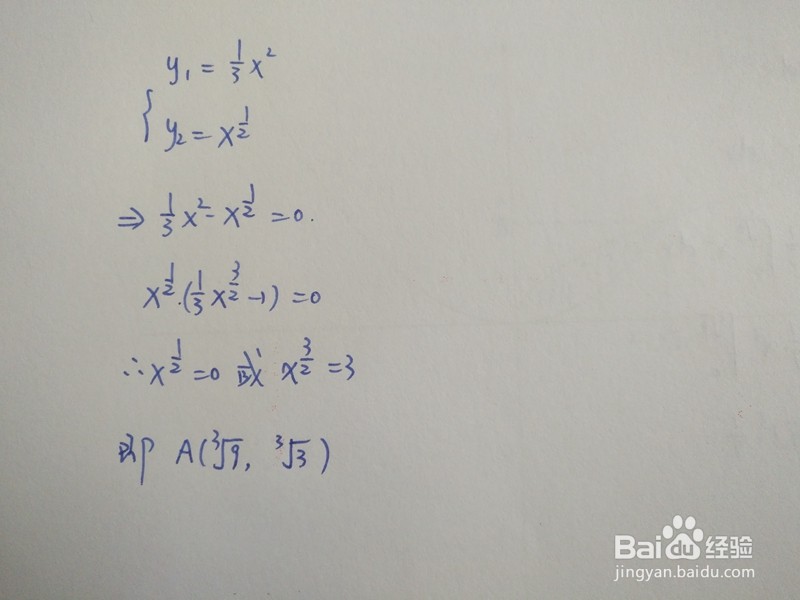 y₁ = 1/3 x²
{ y₂ = x^(1/2)
⇒ 1/3 x² - x^(1/2) = 0.
x^(1/2)·(1/3 x^(3/2) - 1) = 0
∴ x^(1/2) = 0 或 x^(3/2) = 3
即 A(³√9, ³√3)
Baidu 经验
jingyan.baidu.com